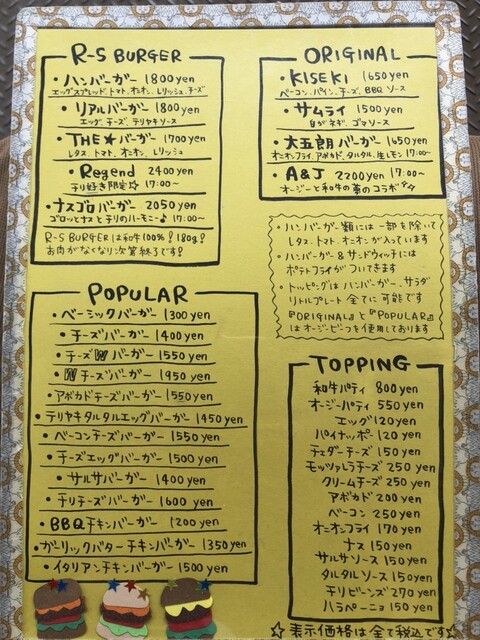 R-S BURGER
・ハンバーガー 1800yen
エッグスプレッド、トマト、オニオン、レリッシュ、チーズ
・リアルバーガー 1800yen
エッグ、チーズ、テリヤキソース
・THE★バーガー 1700yen
レタス、トマト、オニオン、レリッシュ
・Regend 2400yen
チリ好き限定☆ 17:00〜
・ナスゴロバーガー 2050yen
ゴロッとナスとチリのハーモニー♪ 17:00〜
R-S BURGERは和牛100%!180g!
お肉がなくなり次第終了です!
POPULAR
・ベーシックバーガー 1300yen
・チーズバーガー 1400yen
・チーズWバーガー 1550yen
・Wチーズバーガー 1950yen
・アボカドチーズバーガー 1550yen
・テリヤキタルタルエッグバーガー 1450yen
・ベーコンチーズバーガー 1550yen
・チーズエッグバーガー 1500yen
・サルサバーガー 1400yen
・チリチーズバーガー 1600yen
・BBQチキンバーガー 1200yen
・ガーリックバターチキンバーガー 1350yen
・イタリアンチキンバーガー 1500yen
ORIGINAL
・KISEKI 1650yen
ベーコン、パイン、チーズ、BBQソース
・サムライ 1500yen
白ガネギ、ゴマソース
・大五朗バーガー 1650yen
オニオンフライ、アボカド、タルタル、生レモン 17:00〜
・A&J 2200yen 17:00〜
オージーと和牛の夢のコラボ
・ハンバーガー類には一部を除いて
レタス、トマト、オニオンが入っています
・ハンバーガー&サンドウィッチには
ポテトフライがついてきます
・トッピングはハンバーガー、サラダ
リトルプレート全てに可能です
『ORIGINAL』と『POPULAR』
はオージービーフを使用しております
TOPPING
和牛パティ 800yen
オージーパティ 550yen
エッグ 120yen
パイナッポー 120yen
チェダーチーズ 150yen
モッツァレラチーズ 250yen
クリームチーズ 250yen
アボカド 200yen
ベーコン 250yen
オニオンフライ 170yen
ナス 150yen
サルサソース 150yen
タルタルソース 150yen
チリビーンズ 270yen
ハラペーニョ 150yen
☆表示価格は全て税込です☆